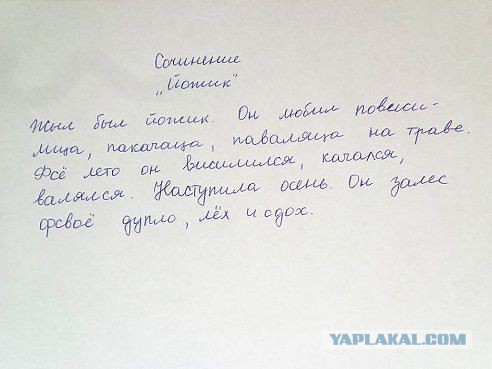 Сочинение
„Йожик"
Жыл был йожик. Он любил повеси-
лица, пакачаца, паваляца на траве.
Фсё лето он висилился, качался,
валялся. Наступила осень. Он залес
фсваё дупло, лёх и сдох.
YAPLAKAL.COM